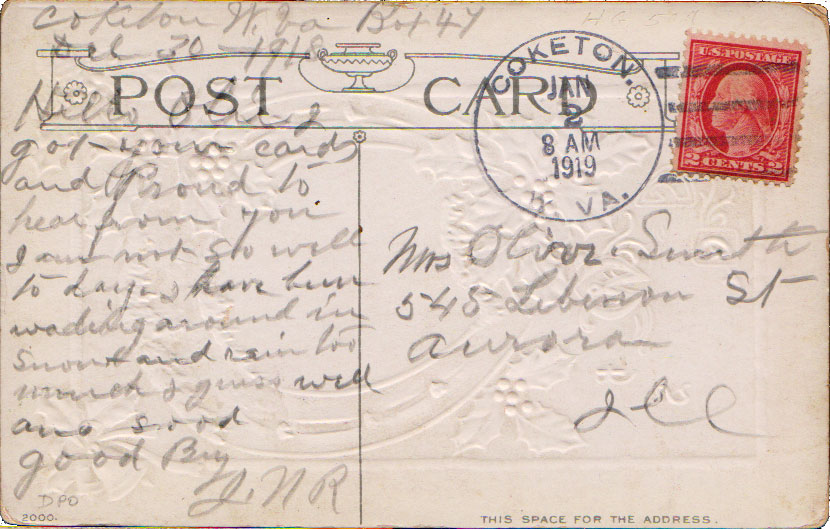 Coketon W. Va Box 47
Dec 30 - 1918
H657
POST CARD
COKETON.
JAN
2
8 AM
1919
W. VA.
U.S. POSTAGE
2 CENTS 2
Hello
got your cards
and Proud to
hear from you
I am not So well
to day I have bin
wading around in
Snow and rain too
much I guess well
ans Sood
good By
J. N R
Mrs Oliver Smith
545 St
Aurora
Ill
DPO
2000.
THIS SPACE FOR THE ADDRESS.